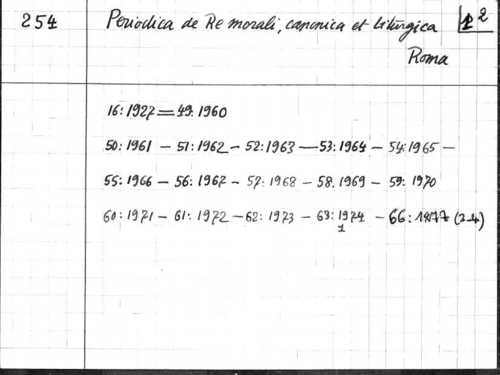 254 Periodica de Re morali, canonica et liturgica 2
Roma
16:1927=49:1960
50:1961 - 51:1962 - 52:1963 - 53:1964 - 54:1965 -
55:1966 - 56:1967 - 57:1968 - 58.1969 - 59:1970
60:1971 - 61:1972 - 62:1973 - 63:1974 - 66:1977 (3-4)
1